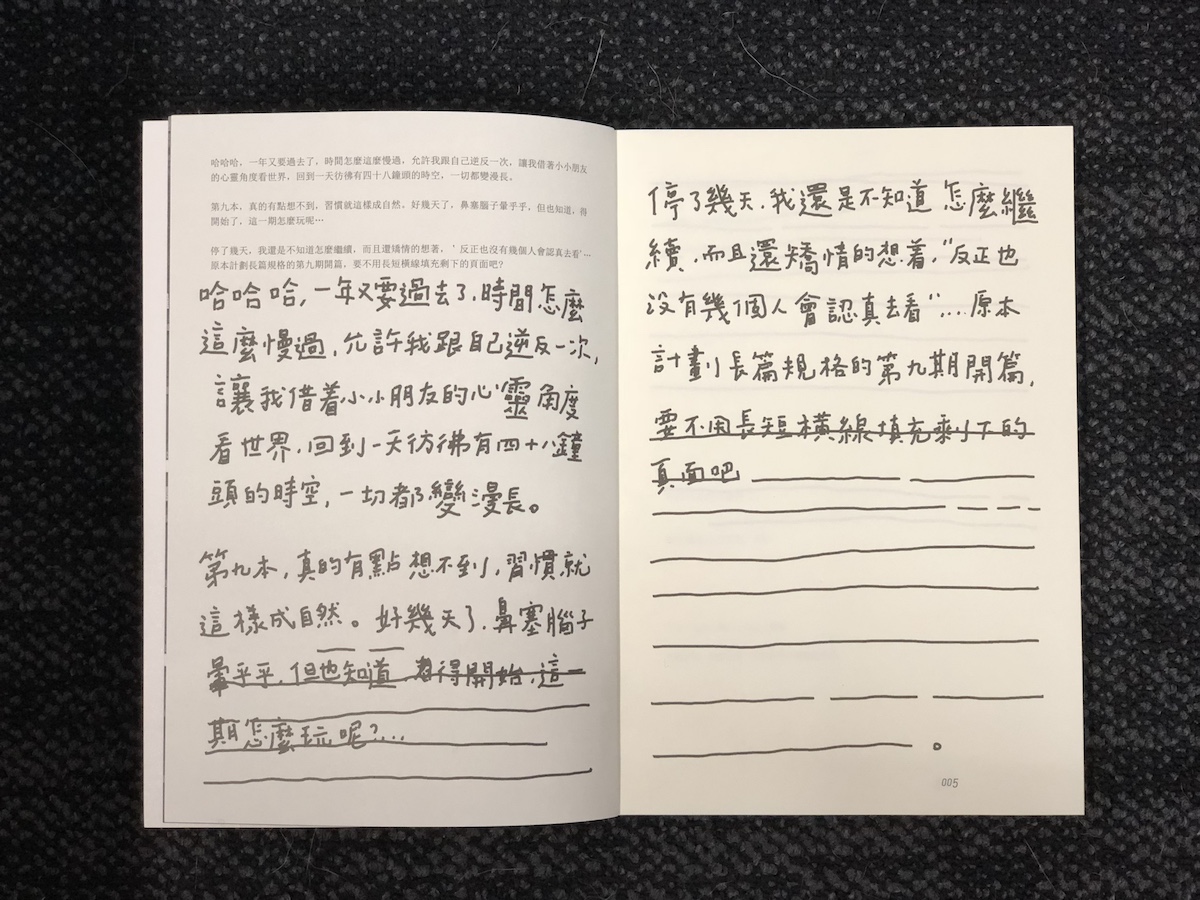 哈哈哈，一年又要過去了，時間怎麼這麼慢過，允許我跟自己逆反一次，讓我借著小小朋友
的心靈角度看世界，回到一天彷彿有四十八鐘頭的時空，一切都變漫長。
第九本，真的有點想不到，習慣就這樣成自然。好幾天了，鼻塞腦子暈乎乎，但也知道，得
開始了，這一期怎麼玩呢⋯
停了幾天，我還是不知道怎麼繼續，而且還矯情的想著，'反正也沒有幾個人會認真去看'⋯
原本計劃長篇規格的第九期開篇，要不用長短橫線填充剩下的頁面吧?
哈哈哈，一年又要過去了，時間怎麼
這麼慢過，允許我跟自己逆反一次，
讓我借着小小朋友的心靈角度
看世界，回到一天彷彿有四十八鐘
頭的時空，一切都變漫長。
第九本，真的有點想不到，習慣就
這樣成自然。好幾天了，鼻塞腦子
暈乎乎，但也知道，得開始，這一
期怎麼玩呢?...
停了幾天，我還是不知道怎麼繼
續，而且還矯情的想着，"反正也
沒有幾個人會認真去看"...原本
計劃長篇規格的第九期開篇，
要不用長短橫線填充剩下的
頁面吧
。
005